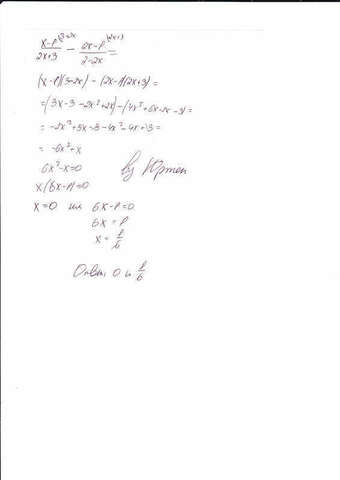 x-1 (3-2x) / 2x+3 - 2x-1 (2x+3) / 3-2x =
(x-1)(3-2x) - (2x-1)(2x+3) =
= (3x-3-2x²+2x) - (4x²+6x-2x-3) =
= -2x²+5x-3-4x²-4x+3 =
= -6x²+x
6x²-x=0
x(6x-1)=0
x=0 или 6x-1=0
6x=1
x=1/6
Ответ: 0 и 1/6
by